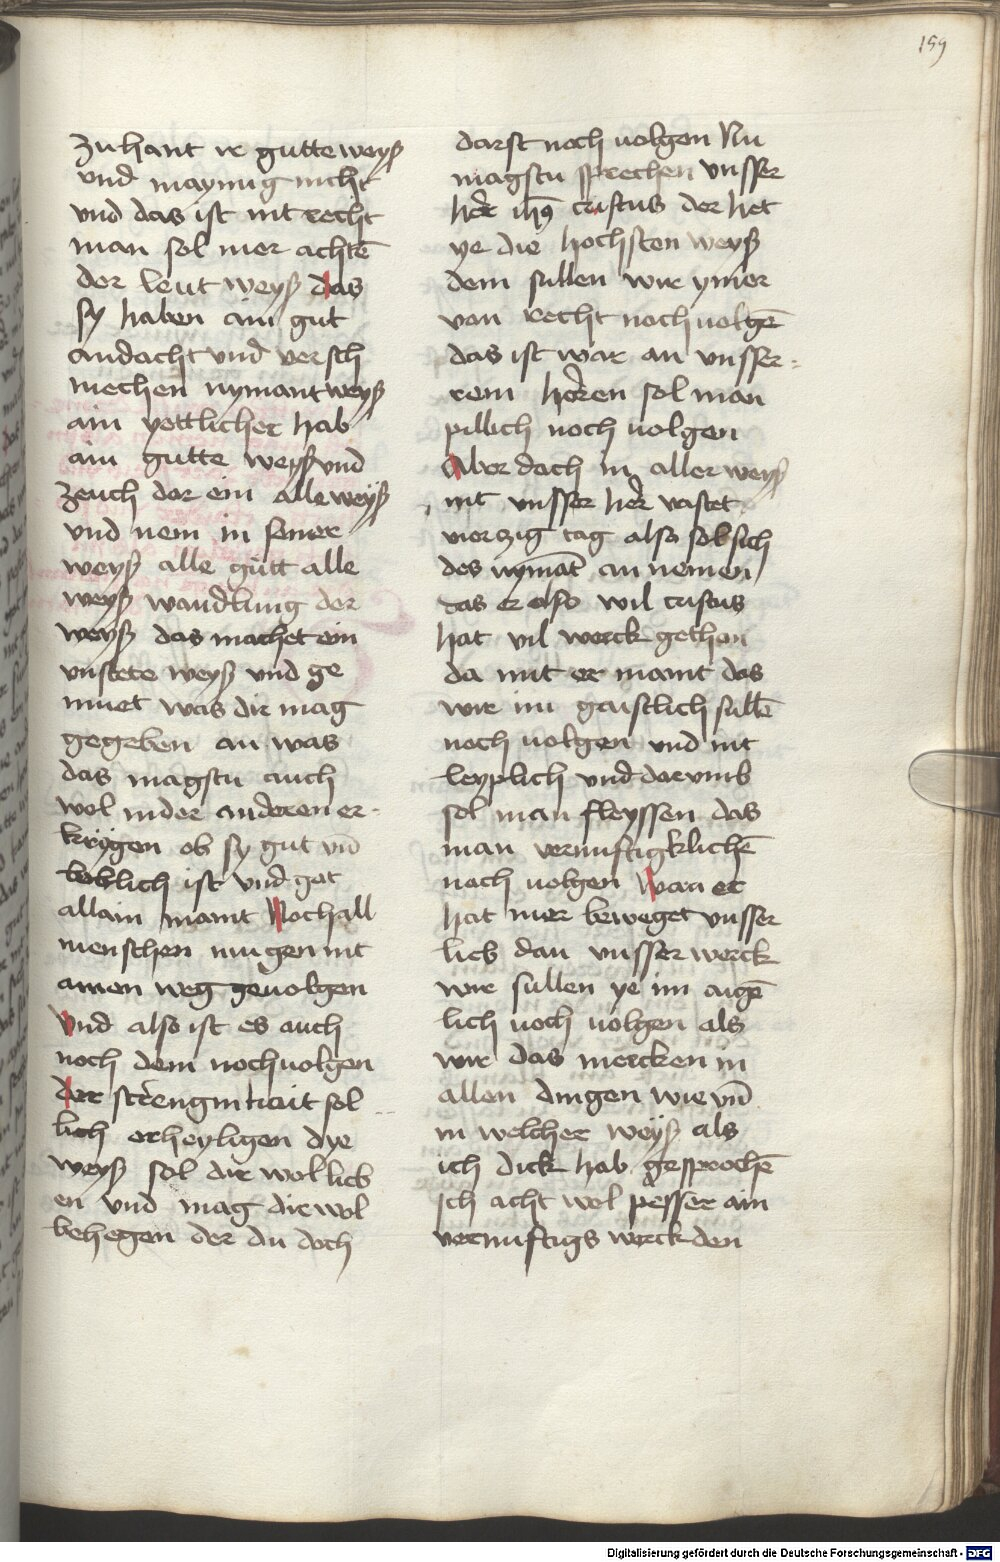 159
zuhant ir gutte weyß
und maynug nicht
und das ist nit recht
man sol mer achtē
der leut weyß das
sy haben ain gut
andacht und versch
mechen nymant weyß
ain yettlicher hab
ain gutte weyß und
zeuch dor ein alle weyß
und nem in seiner
weyß alle gütt alle
weyß wandlung der
weyß das machet ein
unstete weyß und ge
muet was dir mag
gegeben an was
das magstu auch
wol inder anderen er
krÿgen ob sy gut uñ
loblich ist und got
allain maint Noch all
menschen mugen nit
ainen weg gevolgen
Und also ist es auch
noch dem nochvolgen
der strengintkait sol
lich erheyligen dye
weyß sol dir wol lieb
en und mag dir wol
behegen der du doch
darst noch volgen Nu
magstu sprechen unsser
her̄ ihs cristus der het
ye die hochsten weyß
dem sullen wir ymer
von recht noch volgē
das ist war an unsser
rem her̄en sol man
pillich noch volgen
Aber doch in aller weyß
nit unsser her̄ vastet
vierzig tag also sol sich
des nymāt an nemen
das er also wil cristus
hat vil werck gethan
da mit er maint das
wir im gaistlich sullē
noch volgen und nit
leyplich und dorumb
sol man fleyssen das
man vernuftigklichē
noch volgen Wan er
hat mer beweget unsser
lieb dan unsser werck
wir sullen ye im aigē
lich noch volgen als
wir das mercken in
allen dingen wie uñ
in welcher weÿß als
ich dick hab gesprochē
ich acht wol pesser ain
vernuftigs werck den
Digitalisierung gefördert durch die Deutsche Forschungsgemeinschaft - DFG